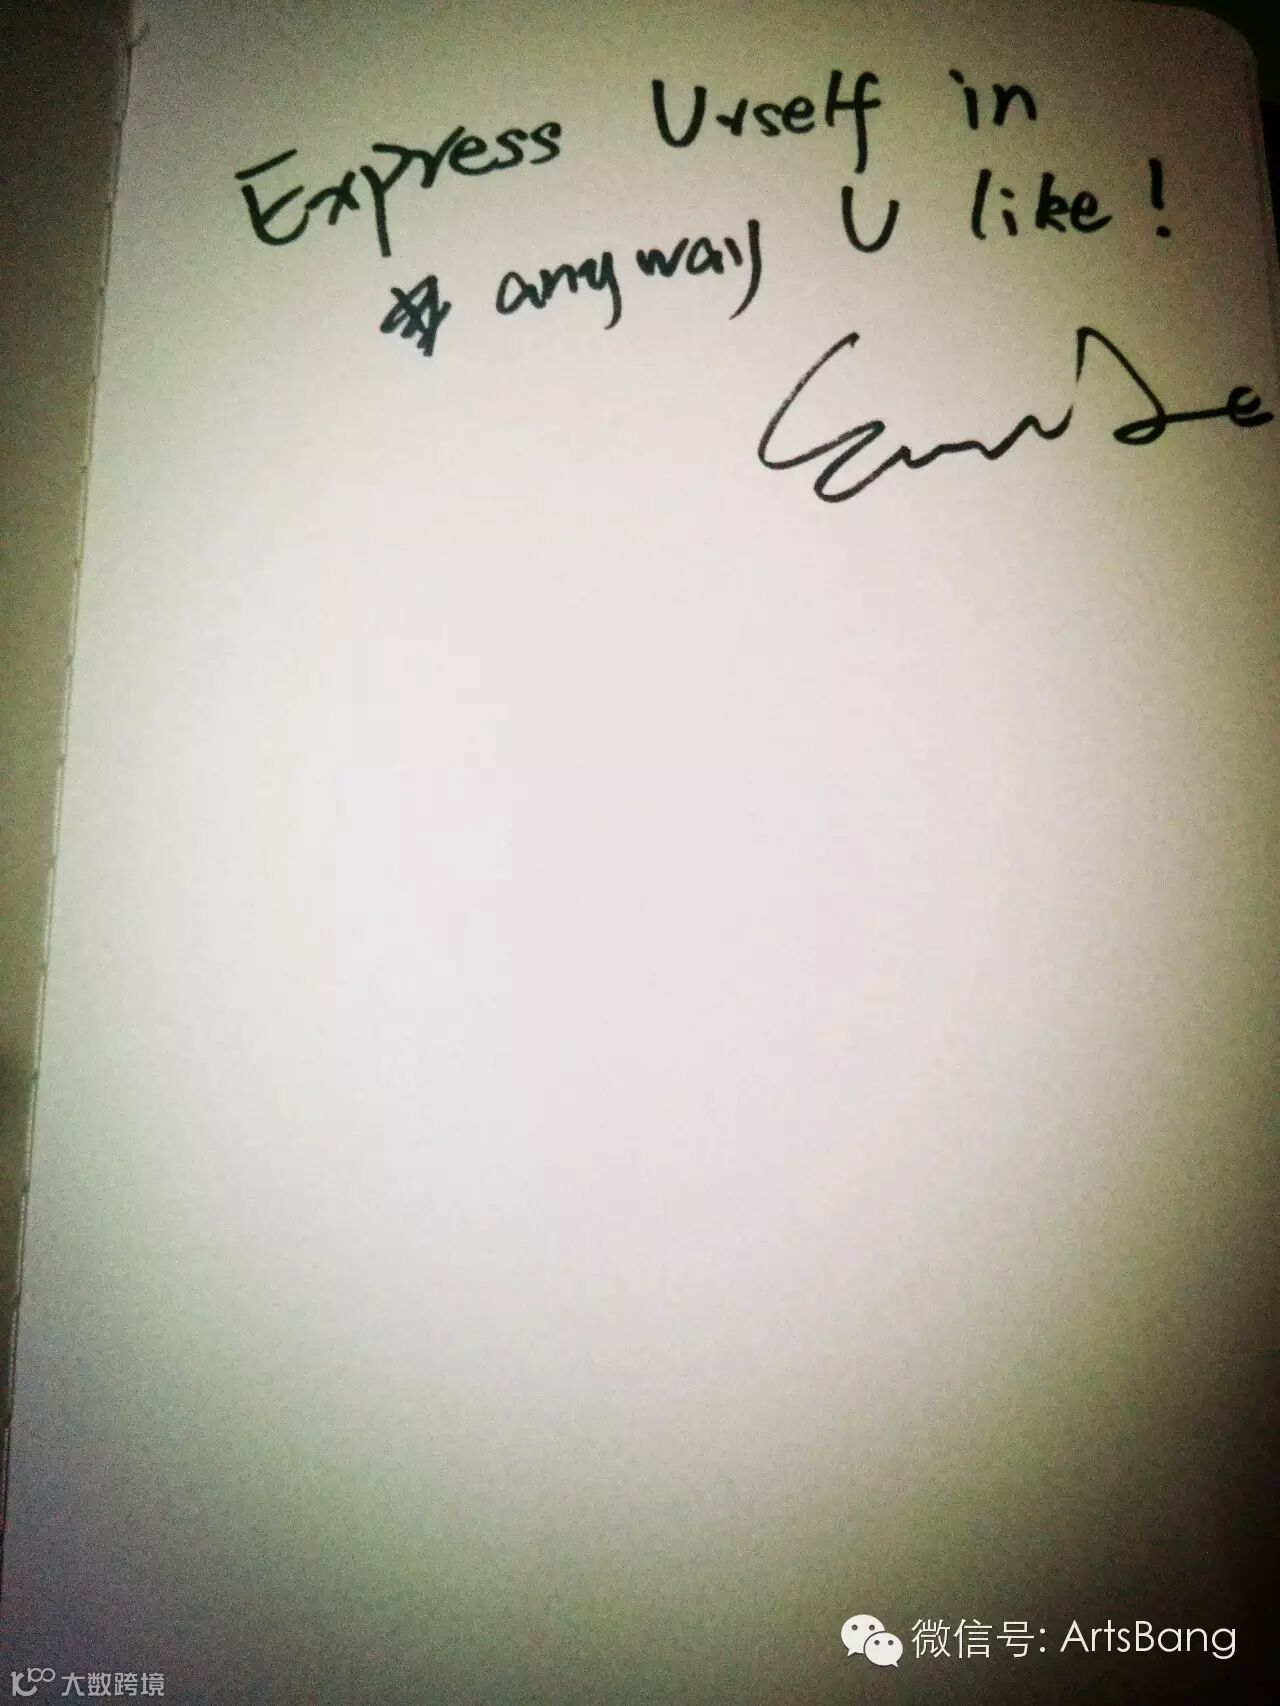 Express Urself in
anyway U like!
微信号: ArtsBang
大数跨境